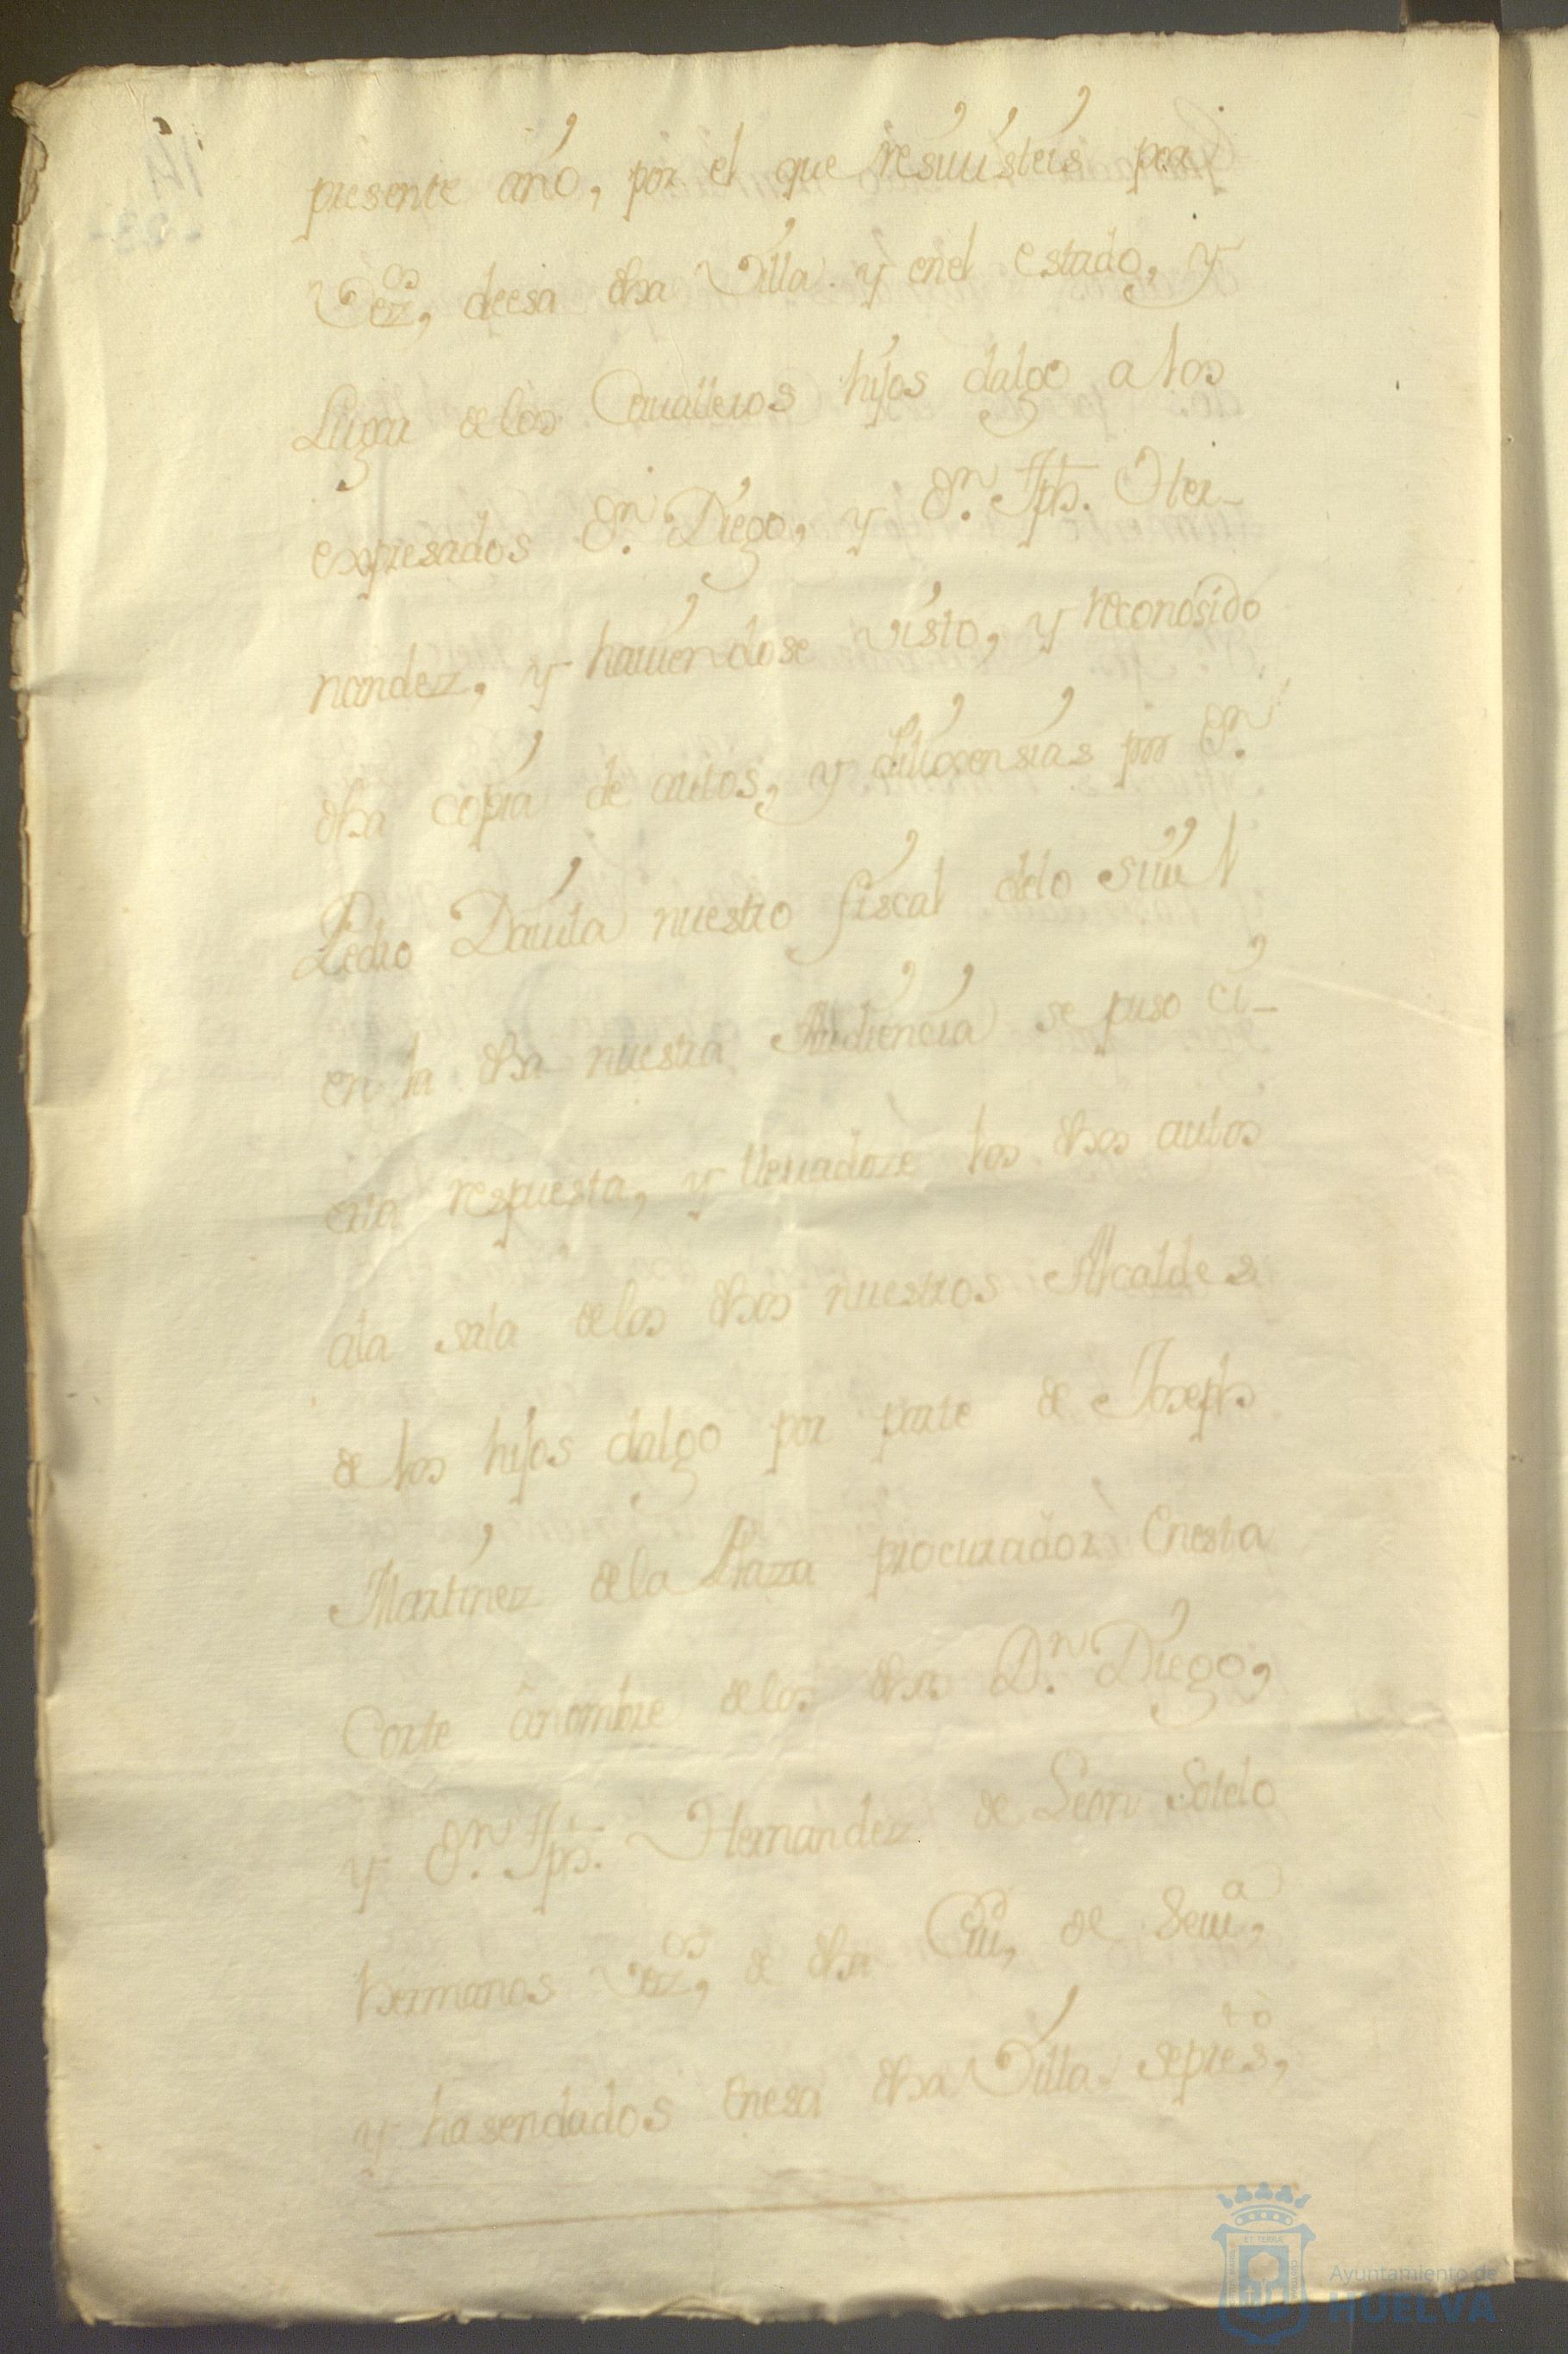 presente año, por el que resiuisteis por
Vez.os, deesa dha Villa y enel estado, y
Lugar delos Caualleros hijos dalgo a los
expresados Dn. Diego, y Dn. Jph. Her-
nandez, y hauiendose visto, y reconosido
dha copia de autos, y dilixensias por Dn.
Pedro Dauila nuestro fiscal delo siuil
en la dha nuestra Audiencia se puso ci-
erta respuesta, y lleuadoze los dhos autos
ala sala delos dhos nuestros Alcaldes
de los hijos dalgo por parte de Joseph
Martinez dela Plaza procurador enesta
Corte anombre delos dhos Dn. Diego,
y Dn. Jph. Hernandez de Leon Sotelo
hermanos Vez.os, de dha Ciud, de Seuia,
y hasendados enesa dha Villa. sepresto,
Ayuntamiento de
HUELVA